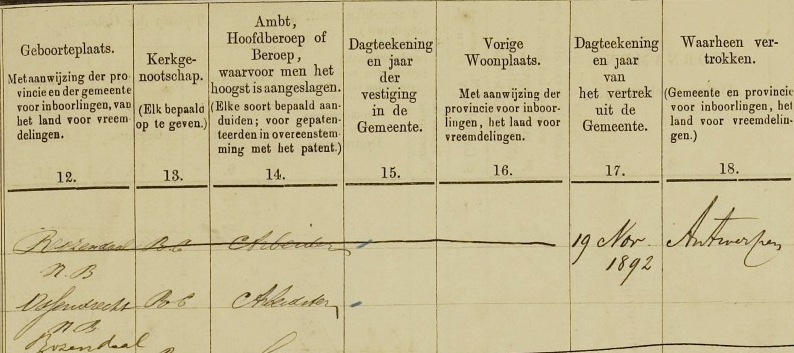 Geboorteplaats.
Met aanwijzing der pro-
vincie en der gemeente
voor inboorlingen, van
het land voor vreem-
delingen.
12.
Kerkge-
nootschap.
(Elk bepaald
op te geven.)
13.
Ambt,
Hoofdberoep of
Beroep,
waarvoor men het
hoogst is aangeslagen.
(Elke soort bepaald aan-
duiden; voor gepaten-
teerden in overeenstem-
ming met het patent.)
14.
Dagteekening
en jaar
der
vestiging
in de
Gemeente.
15.
Vorige
Woonplaats.
Met aanwijzing der
provincie voor inboor-
lingen, het land voor
vreemdelingen.
16.
Dagteekening
en jaar
van
het vertrek
uit de
Gemeente.
17.
Waarheen ver-
trokken.
(Gemeente en provincie
voor inboorlingen, het
land voor vreemdelin-
gen.)
18.
R.C. Arbeider 19 Nov. Antwerpen
N.B 1892
Ossendrecht R.C Arbeider
N.B
Rosendaal